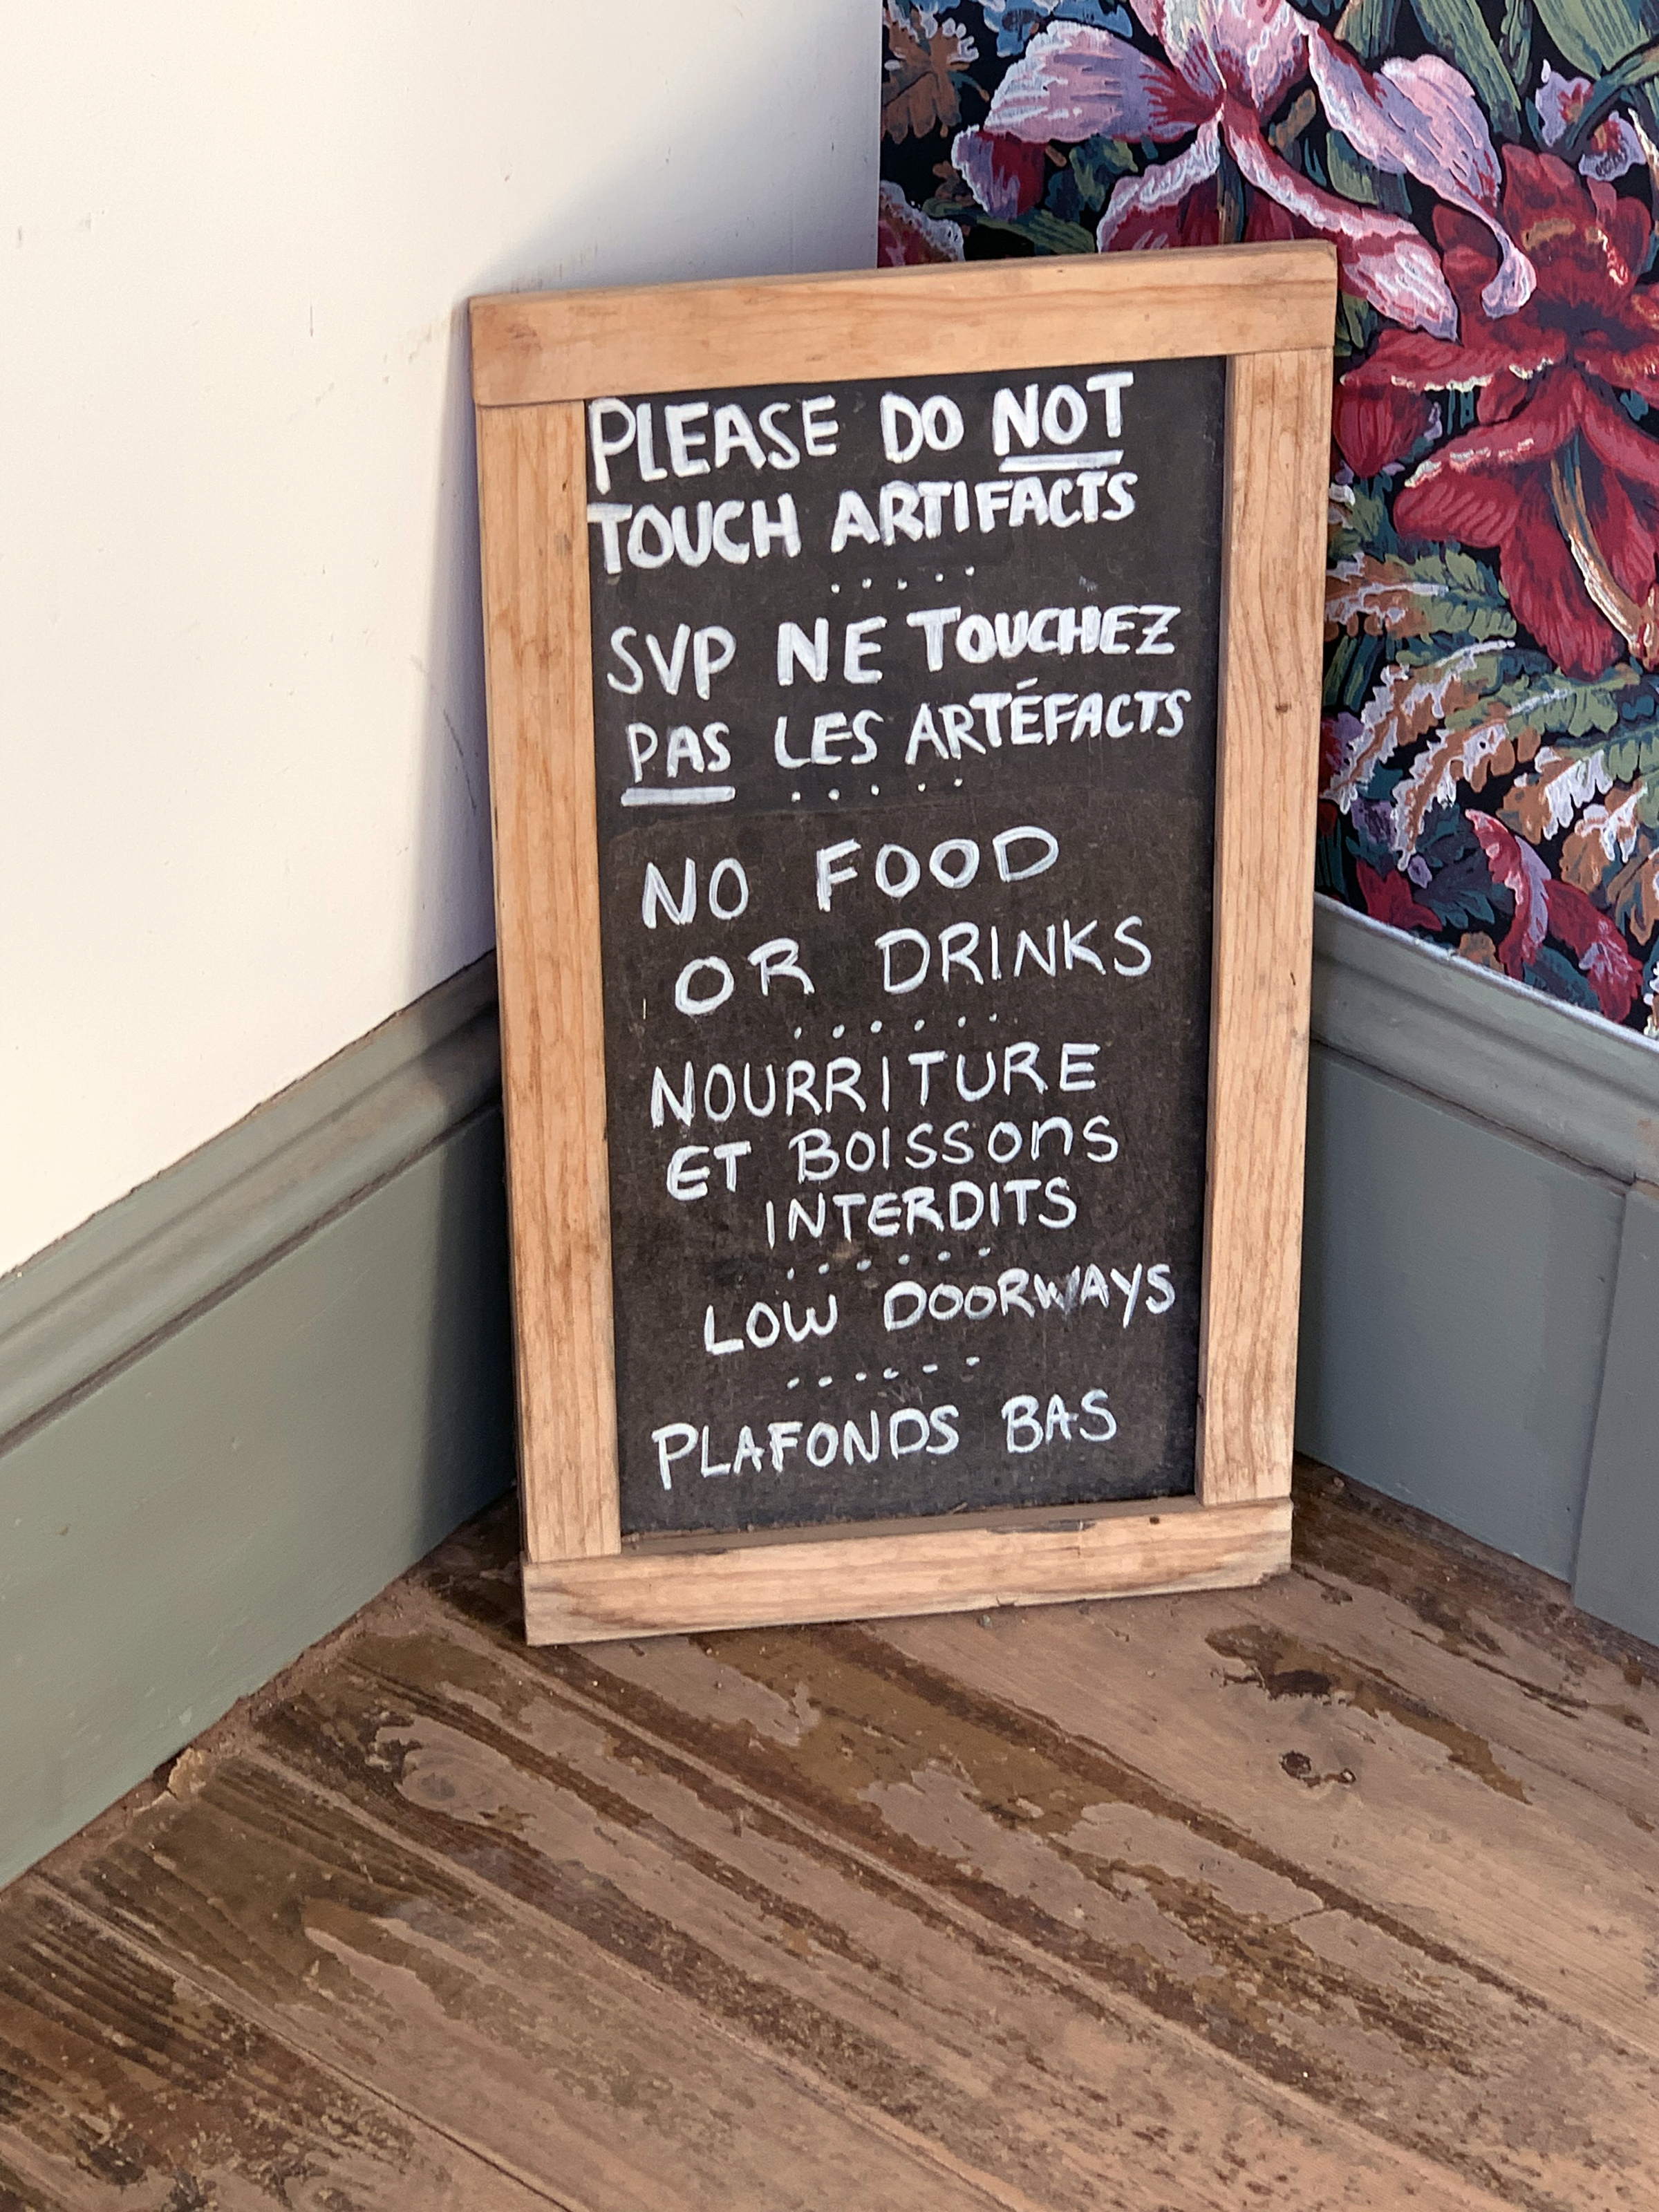 PLEASE DO NOT
TOUCH ARTIFACTS
SVP NE TOUCHEZ
PAS LES ARTÉFACTS
NO FOOD
OR DRINKS
NOURRITURE
ET BOISSONS
INTERDITS
LOW DOORWAYS
PLAFONDS BAS